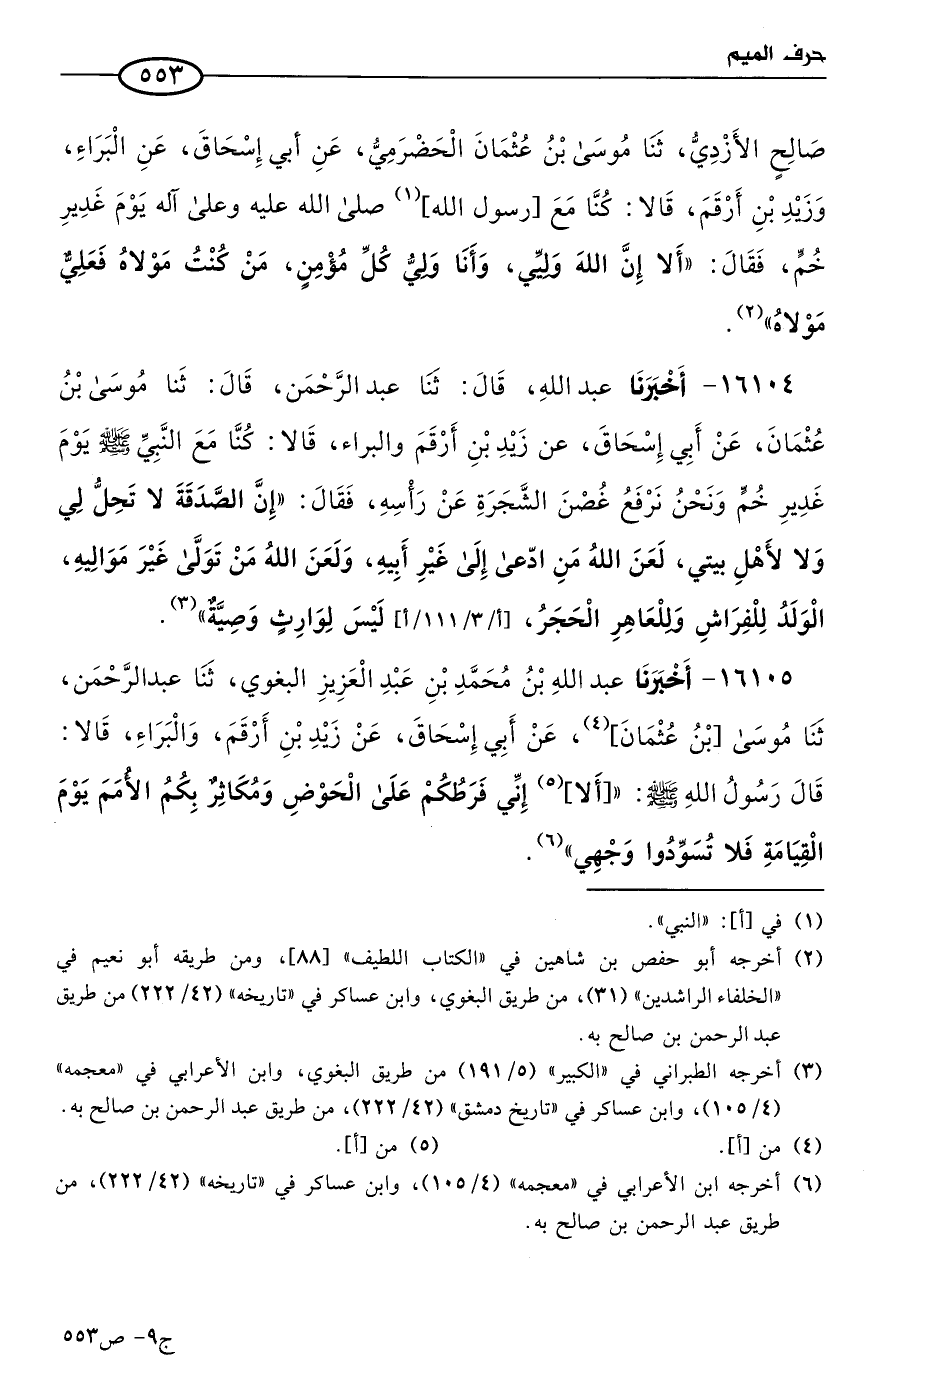 حرف الميم
٥٥٣
صَالِحٍ الأَزْدِيُّ، ثَنَا مُوسَىٰ بْنُ عُثْمَانَ الْحَضْرَمِيُّ، عَنِ أبي إِسْحَاقَ، عَنِ الْبَرَاءِ،
وَزَيْدِ بْنِ أَرْقَمَ، قَالا: كُنَّا مَعَ [رسول الله](١) صلىٰ الله عليه وعلىٰ آله يَوْمَ غَدِيرِ
خُمٍّ، فَقَالَ: «أَلا إِنَّ اللهَ وَلِيِّي، وَأَنَا وَلِيُّ كُلِّ مُؤْمِنٍ، مَنْ كُنْتُ مَوْلاهُ فَعَلِيٌّ
مَوْلاهُ»(٢).
١٦١٠٤- أَخْبَرَنَا عبد اللهِ، قَالَ: ثَنَا عبد الرَّحْمَن، قَالَ: ثَنا مُوسَىٰ بْنُ
عُثْمَانَ، عَنْ أَبِي إِسْحَاقَ، عن زَيْدِ بْنِ أَرْقَمَ والبراء، قَالا: كُنَّا مَعَ النَّبِيِّ ﷺ يَوْمَ
غَدِيرِ خُمٍّ وَنَحْنُ نَرْفَعُ غُصْنَ الشَّجَرَةِ عَنْ رَأْسِهِ، فَقَالَ: «إِنَّ الصَّدَقَةَ لا تَحِلُّ لِي
وَلا لأَهْلِ بيتي، لَعَنَ اللهُ مَنِ ادّعىٰ إِلَىٰ غَيْرِ أَبِيهِ، وَلَعَنَ اللهُ مَنْ تَوَلَّىٰ غَيْرَ مَوَالِيهِ،
الْوَلَدُ لِلْفِرَاشِ وَلِلْعَاهِرِ الْحَجَرُ، [أ/٣/١١١/أ] لَيْسَ لِوَارِثٍ وَصِيَّةٌ»(٣).
١٦١٠٥- أَخْبَرَنَا عبد اللهِ بْنُ مُحَمَّدِ بْنِ عَبْدِ الْعَزِيزِ البغوي، ثَنَا عبدالرَّحْمَن،
ثَنَا مُوسَىٰ [بْنُ عُثْمَانَ](٤)، عَنْ أَبِي إِسْحَاقَ، عَنْ زَيْدِ بْنِ أَرْقَمَ، وَالْبَرَاءِ، قَالا:
قَالَ رَسُولُ اللهِ ﷺ: «[أَلا](٥) إِنِّي فَرَطُكُمْ عَلَىٰ الْحَوْضِ وَمُكَاثِرٌ بِكُمُ الأُمَمَ يَوْمَ
الْقِيَامَةِ فَلا تُسَوِّدُوا وَجْهِي»(٦).
(١) في [أ]: «النبي».
(٢) أخرجه أبو حفص بن شاهين في «الكتاب اللطيف» [٨٨]، ومن طريقه أبو نعيم في
«الخلفاء الراشدين» (٣١)، من طريق البغوي، وابن عساكر في «تاريخه» (٤٢/ ٢٢٢) من طريق
عبد الرحمن بن صالح به.
(٣) أخرجه الطبراني في «الكبير» (٥/ ١٩١) من طريق البغوي، وابن الأعرابي في «معجمه»
(٤/ ١٠٥)، وابن عساكر في «تاريخ دمشق» (٤٢/ ٢٢٢)، من طريق عبد الرحمن بن صالح به.
(٤) من [أ]. (٥) من [أ].
(٦) أخرجه ابن الأعرابي في «معجمه» (٤/ ١٠٥)، وابن عساكر في «تاريخه» (٤٢/ ٢٢٢)، من
طريق عبد الرحمن بن صالح به.
ج٩- ص٥٥٣